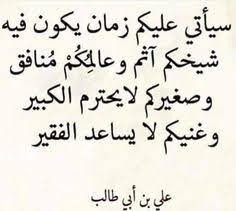 سيأتي عليكم زمان يكون فيه
شيخكم آثم وعالِمِكُمْ مُنافق
وصغيركم لايحترم الكبير
وغنيكم لا يساعد الفقير
علي بن أبي طالب